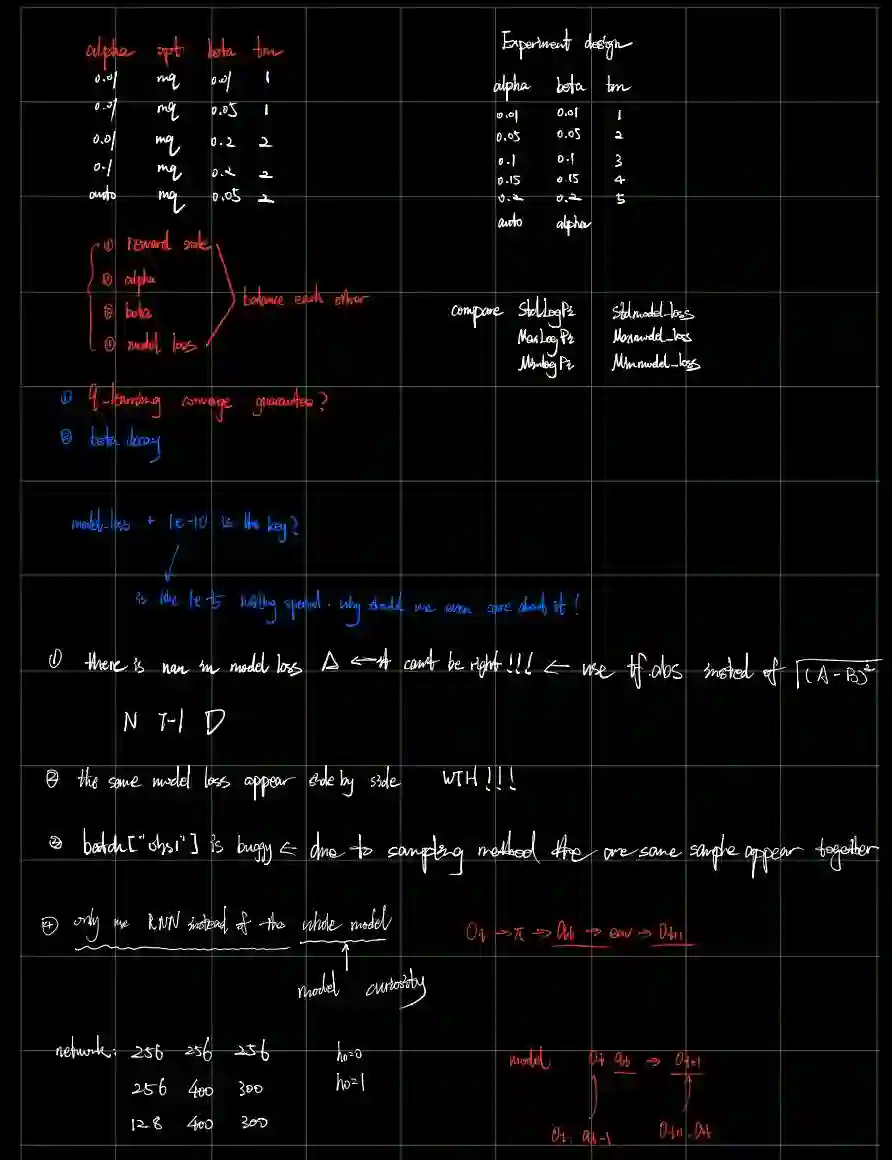 alpha opt beta tm
0.01 mq 0.01 1
0.01 mq 0.05 1
0.01 mq 0.2 2
0.1 mq 0.2 2
auto mq 0.05 2
Experiment design
alpha beta tm
0.01 0.01 1
0.05 0.05 2
0.1 0.1 3
0.15 0.15 4
0.2 0.2 5
auto alpha
① reward scale
② alpha
③ beta
④ model loss
balance each other
compare StdLogPi Stdmodel_loss
MaxLogPi Maxmodel_loss
MinLogPi Minmodel_loss
① Q-learning converge guarantee?
② beta decay
model_loss + 1e-10 is the key?
is like 1e-5 nothing special. why should we even care about it!
① there is nan in model loss Δ ← it can't be right!!! ← use tf.abs instead of √(A-B)²
N T-1 D
② the same model loss appear side by side WTH!!!
③ batch["obs1"] is buggy ← due to sampling method the are same sample appear together
④ only use RNN instead of the whole model
model curiosity
Ot → π → at → env → Ot+1
network: 256 256 256 h0=0
256 400 300 h0=1
128 400 300
model Ot at → Ot+1
Ot, at-1 Ot+1, at